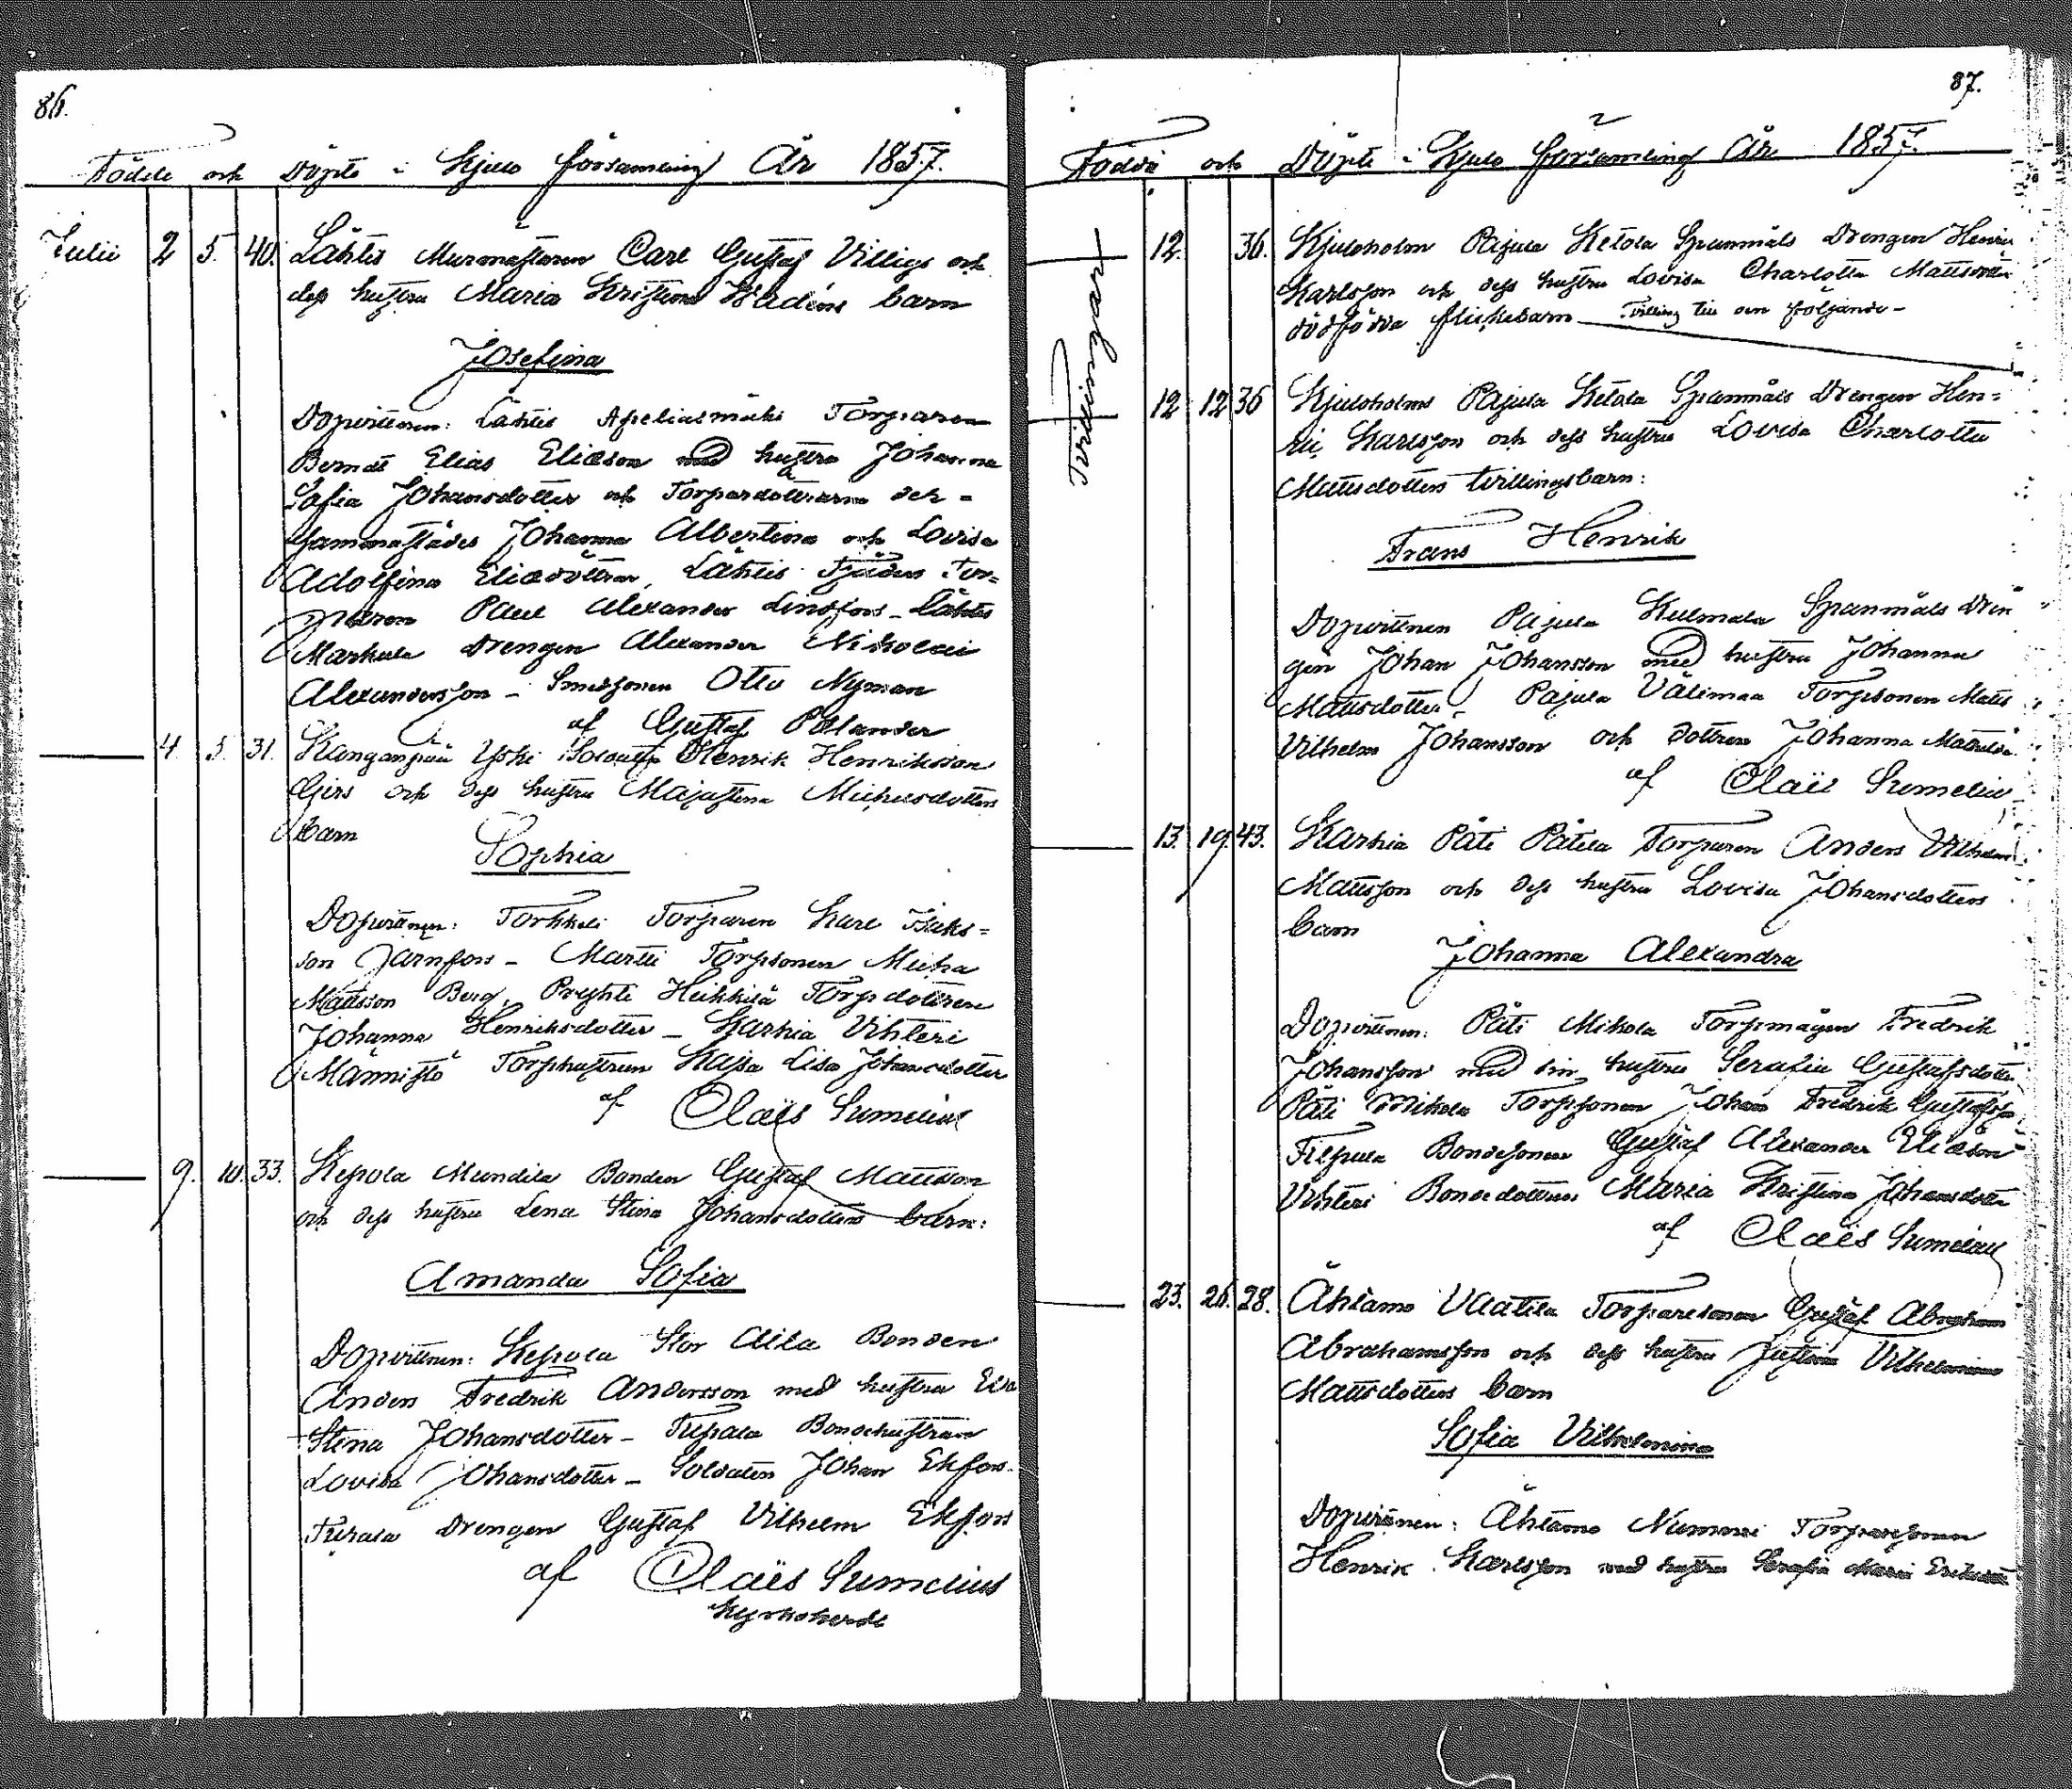 86.
Födde och Döpte i Kjulo församling År 1857.
Julii 2 5. 40. Lähtis Murmästaren Carl Gustaf Villigs och
dess hustru Maria Kristina barn
Josefina
Dopvittnen: Lähtis Torparen
Berndt Elias Eliæson med hustru Johanna
Sofia Johansdotter och Torpardöttrarna der-
sammastädes Johanna Albertina och Lovisa
Adolfina Eliædöttrar, Lähtis Tor-
paren Paul Alexander Lindfors - Lähtis
Markula Drengen Alexander Nikolai
Alexandersson - Smedsonen Otto Nyman
af Gustaf Polander
4. 5. 31. Kanganpää Yski Henrik Henriksson
Girs och dess hustru Majastina Michelsdotters
barn
Sophia
Dopvittnen: Torkkeli Torparen Karl Isaks-
son Järnfors - Martti Torpsonen Micha
Mattsson Berg, Heikkilä Torpdottren
Johanna Henriksdotter - Karhia Vihteri
Männistö Torphustrun Kajsa Lisa Johansdotter
af Claës Sumelius
9. 10. 33. Kepola Mundila Bonden Gustaf Mattsson
och dess hustru Lena Stina Johansdotters barn:
Amanda Sofia
Dopvittnen: Kepola Stor Aila Bonden
Anders Fredrik Andersson med hustru Eva
Stina Johansdotter - Bondehustrun
Lovisa Johansdotter - Soldaten Johan Ekfors
Drengen Gustaf Vilhelm Ekfors
af Claës Sumelius
Kyrkoherde
87.
Födde och Döpte i Kjulo församling År 1857.
Tvillingar
12. 36. Kjuloholm Pajula Ketola Spanmåls Drengen Henric
Karlsson och dess hustru Lovisa Charlotta Mattsdotters
dödfödda flickebarn Tvilling till den följande -
12 12 36 Kjuloholms Pajula Ketola Spanmåls Drengen Hen-
ric Karlsson och dess hustru Lovisa Charlotta
Mattsdotters tvillingsbarn:
Frans Henrik
Dopvittnen Pajula Kulmala Spanmåls Dren
gen Johan Johansson med hustru Johanna
Mattsdotter - Pajula Välimaa Torpsonen Matts
Vilhelm Johansson och dottren Johanna Matilda
af Claës Sumelius
13. 19. 43. Karhia Päti Pätilä Torparen Anders Vilhelm
Mattsson och dess hustru Lovisa Johansdotters
barn
Johanna Alexandra
Dopvittnen: Päti Mikola Torpmågen Fredrik
Johansson med sin hustru Serafia Gustafsdotter
Päti Mikola Torpsonen Johan Fredrik Gustafsson
Filpula Bondesonen Gustaf Alexander Eliæson
Vihteri Bondedottren Maria Kristina Johansdotter
af Claës Sumelius
23. 26. 28. Ähtamo Uutila Torparesonen Gustaf Abraham
Abrahamsson och dess hustru Justina Vilhelmina
Mattsdotters barn
Sofia Vilhelmina
Dopvittnen: Ähtamo Nummi Torparesonen
Henrik Karlsson med hustru Serafia Maria